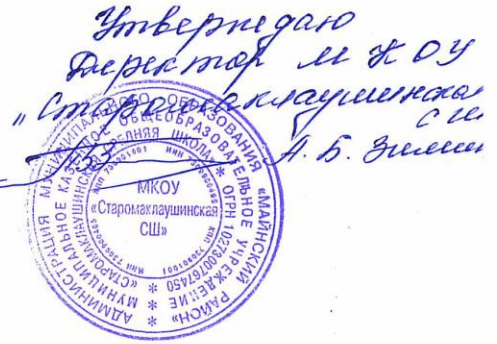 Утверждаю
Директор МКОУ
„Старомаклаушинская
СШ
А. Б.
АДМИНИСТРАЦИЯ МУНИЦИПАЛЬНОГО ОБРАЗОВАНИЯ «МАЙНСКИЙ РАЙОН»
МУНИЦИПАЛЬНОЕ КАЗЕННОЕ ОБЩЕОБРАЗОВАТЕЛЬНОЕ УЧРЕЖДЕНИЕ
«СТАРОМАКЛАУШИНСКАЯ СРЕДНЯЯ ШКОЛА» * ОГРН 1027300767450
МКОУ
«Старомаклаушинская
СШ»